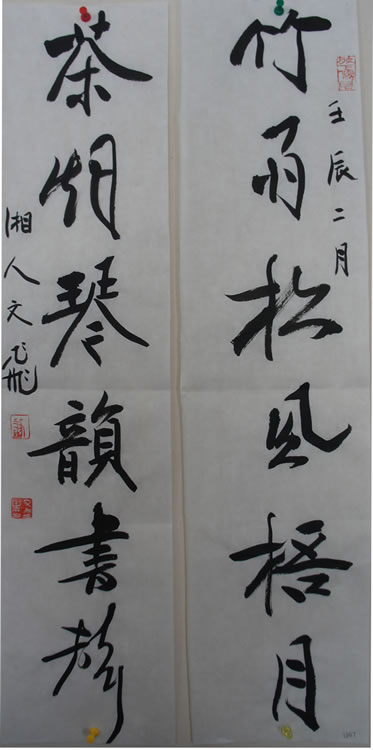 壬辰二月
竹雨松风梧月
茶烟琴韻書聲
湘人文